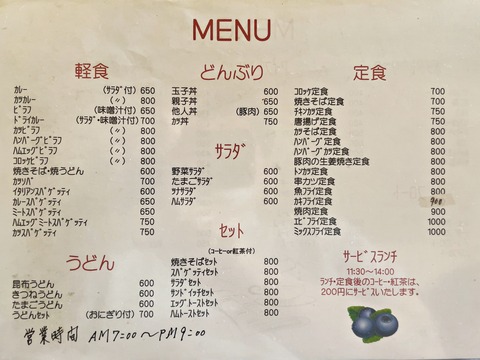 MENU
軽食
カレー (サラダ付) 650
カツカレー (〃) 800
ピラフ (味噌汁付) 650
ドライカレー (サラダ・味噌汁付) 700
カツピラフ (〃) 800
ハンバーグピラフ (〃) 800
ハムエッグピラフ (〃) 800
コロッケピラフ (〃) 800
焼きそば・焼うどん 600
カツソバ 700
イタリアンスパゲッティ 600
カレースパゲッティ 650
ミートスパゲッティ 650
ハムエッグミートスパゲッティ 750
カツスパゲッティ 750
うどん
昆布うどん 600
きつねうどん 600
たまごうどん 600
うどんセット (おにぎり付) 700
営業時間 AM7:00〜PM9:00
どんぶり
玉子丼 600
親子丼 650
他人丼 (豚肉) 650
カツ丼 750
サラダ
野菜サラダ 600
たまごサラダ 600
ツナサラダ 600
ハムサラダ 600
セット
(コーヒーor紅茶付)
焼きそばセット 800
スパゲッティセット 800
サラダセット 800
サンドイッチセット 800
エッグトーストセット 800
ハムトーストセット 800
定食
コロッケ定食 700
焼きそば定食 700
チキンカツ定食 750
唐揚げ定食 750
カツそば定食 800
ハンバーグ定食 800
ハンバーグカツ定食 800
豚肉の生姜焼き定食 800
トンカツ定食 800
串カツ定食 800
魚フライ定食 800
カキフライ定食 900
焼肉定食 900
エビフライ定食 1000
ミックスフライ定食 1000
サービスランチ
11:30〜14:00
ランチ・定食後のコーヒー・紅茶は、
200円にサービスいたします。